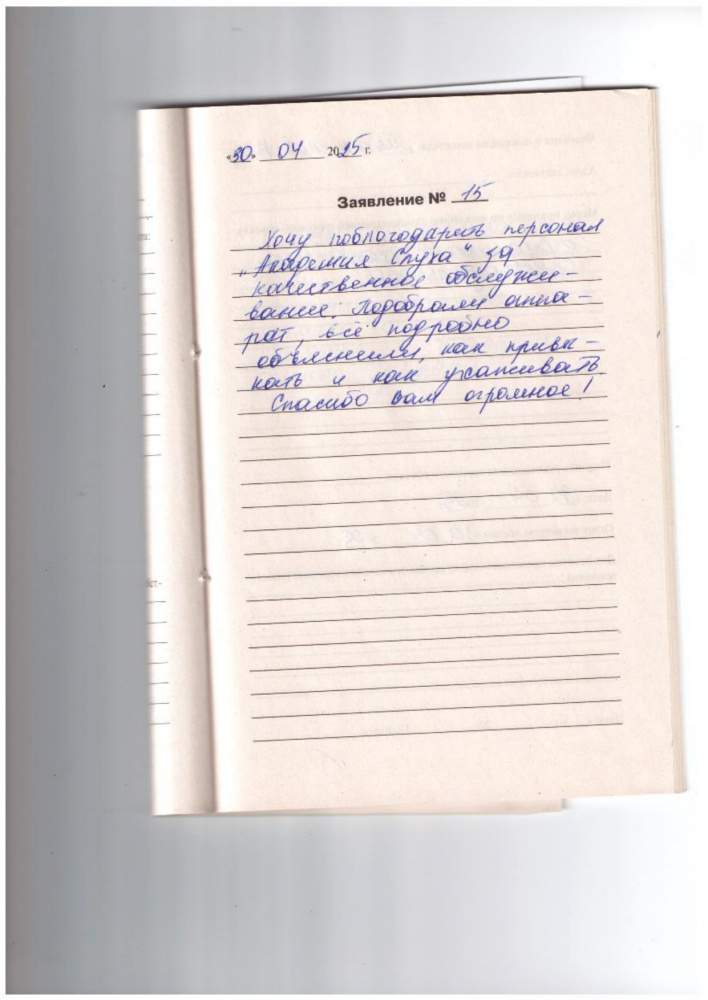 «30» 04 2025 г.
Заявление № 15
Хочу поблогодарить персонал
"Академия Слуха" за
качественное обслужи-
вание. Подобрали аппа-
рат, всё подробно
объяснили, как привы-
кать и как ухаживать
Спасибо вам огромное!